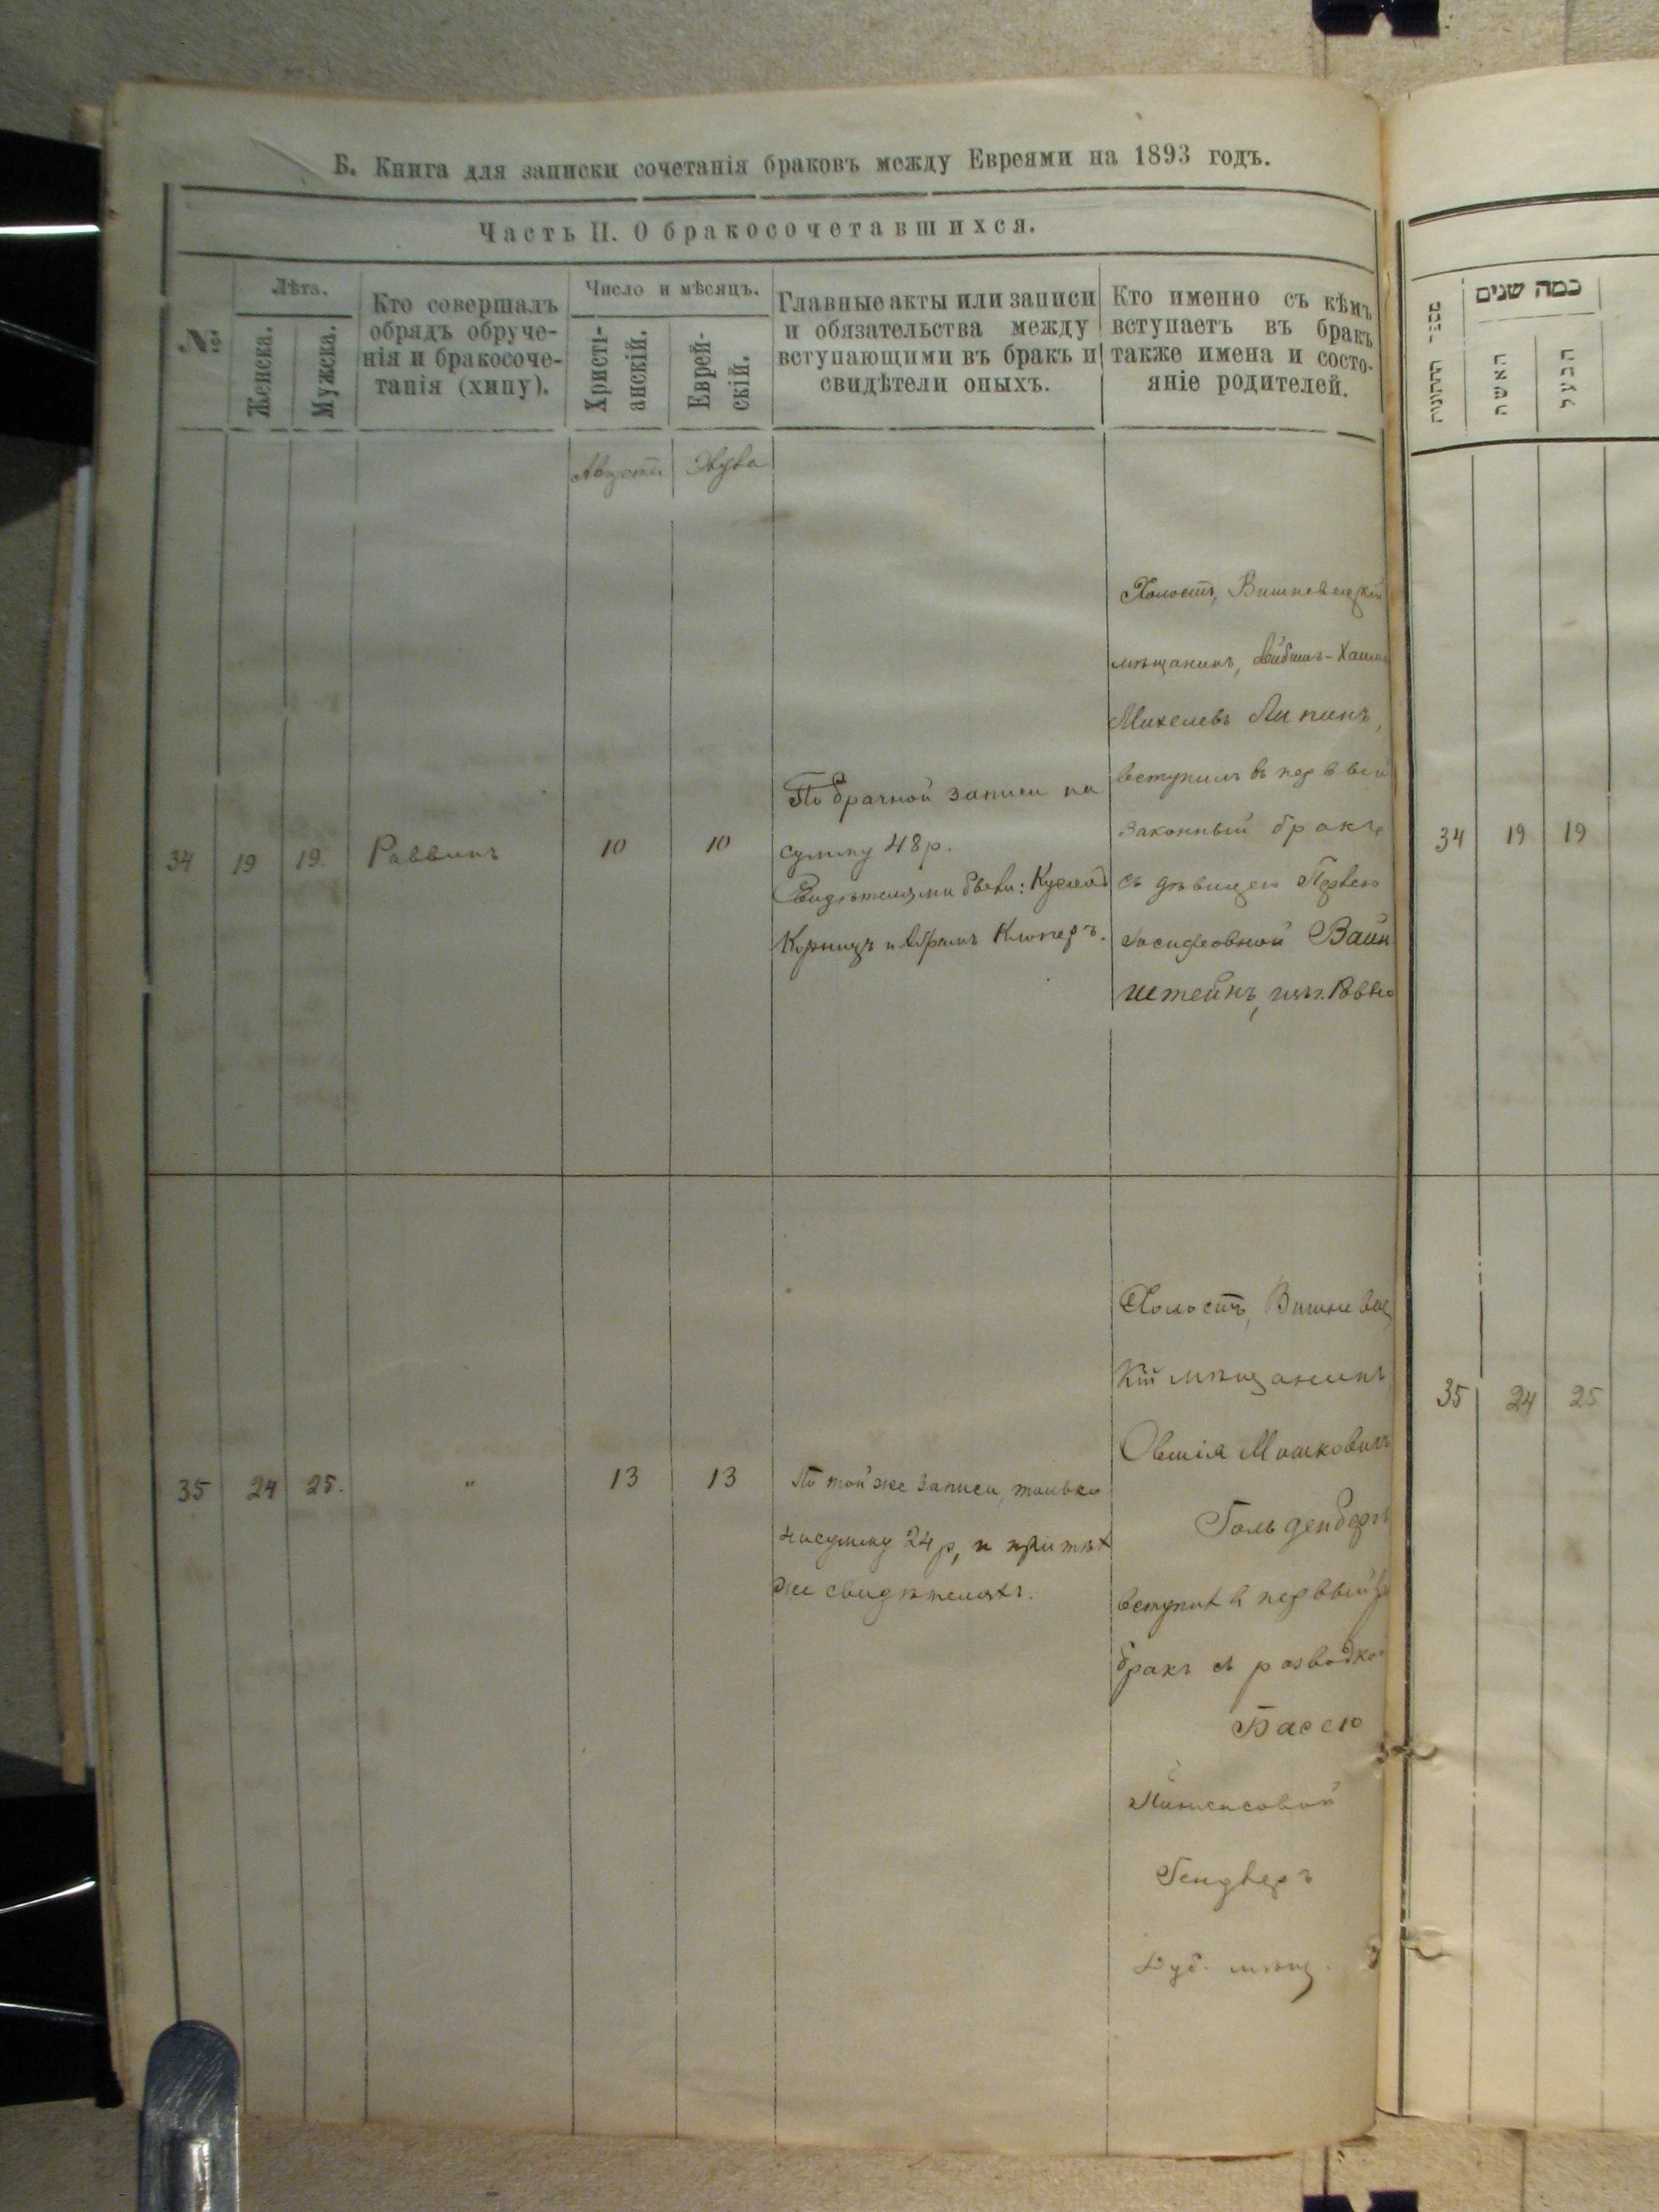 Б. Книга для записки сочетанія браковъ между Евреями на 1893 годъ.
Часть II. О бракосочетавшихся.
№
Лѣта.
Женска.
Мужска.
Кто совершалъ
обрядъ обруче-
нія и бракосоче-
танія (хипу).
Число и мѣсяцъ.
Христі-
анскій.
Еврей-
скій.
Главные акты или записи
и обязательства между
вступающими въ бракъ и
свидѣтели оныхъ.
Кто именно съ кѣмъ
вступаетъ въ бракъ
также имена и состо-
яніе родителей.
Августъ
34
19
19
Раввинъ
10
10
По брачной записи на
сумму 48 р.
Свидѣтелями были:
и Абрамъ Клоперъ.
Холостъ, Вишневецкій
мѣщанинъ, Лейбишъ-Хаимъ
Михелевъ Липинъ,
вступилъ въ первый
законный бракъ
съ дѣвицею Перлею
Іосифовной Вайн
штейнъ, изъ г. Ровно
35
24
25.
"
13
13
По той же записи, только
на сумму 24 р, и при тѣх
же свидѣтеляхъ.
Холостъ, Вишневец
кій мѣщанинъ
Овшія Мошковичъ
Гольденбергъ
вступил в первый
бракъ съ разводкою
Бассю
Пинхасовой
Гендлеръ
Дуб. мѣщ.
כמה שנים
האשה
הבעל
34
19
19
35
24
25